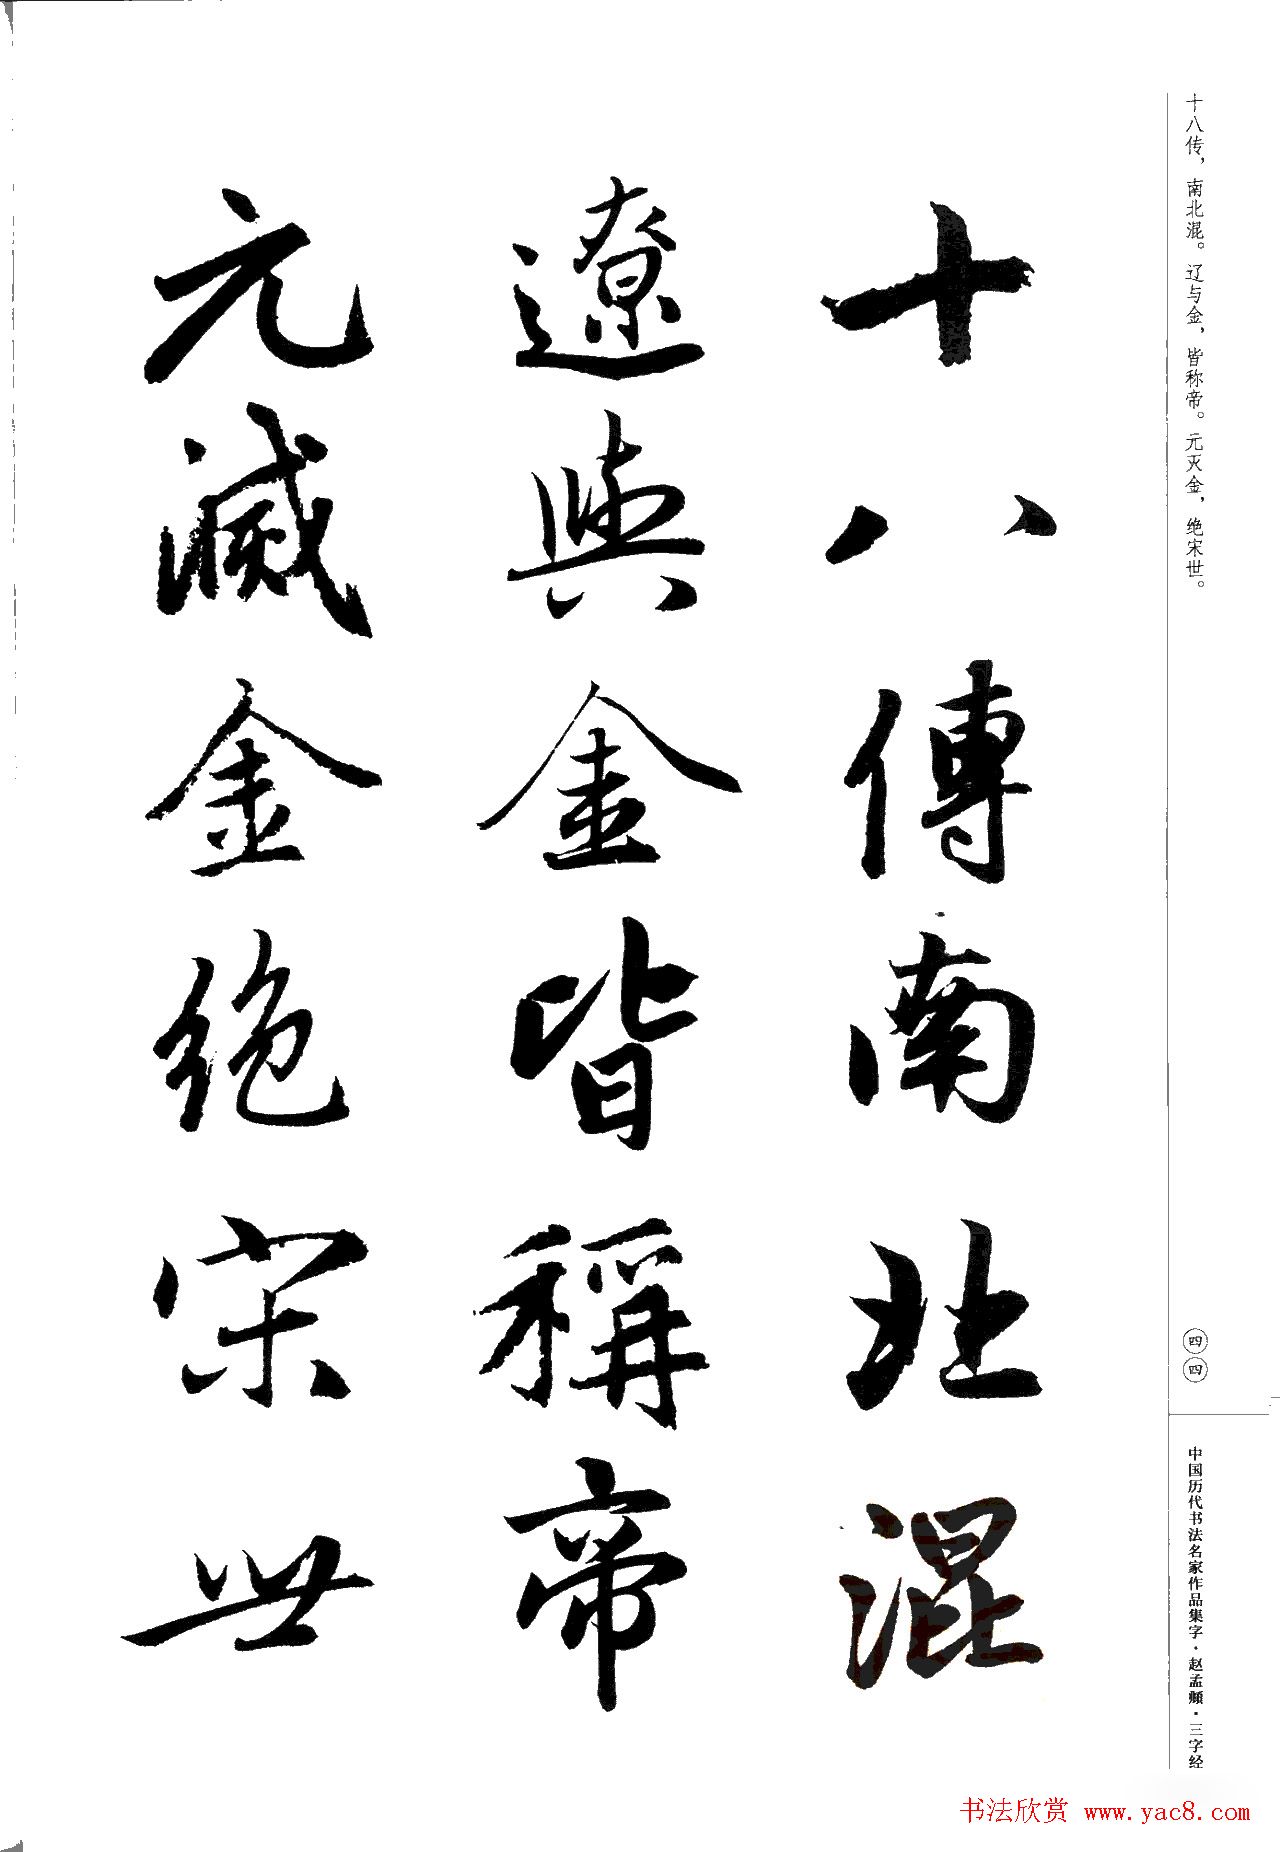 十八传，南北混。辽与金，皆称帝。元灭金，绝宋世。
十八傳南北混
遼與金皆稱帝
元滅金絶宋世
四四
中国历代书法名家作品集字·赵孟頫·三字经
书法欣赏 www.yac8.com